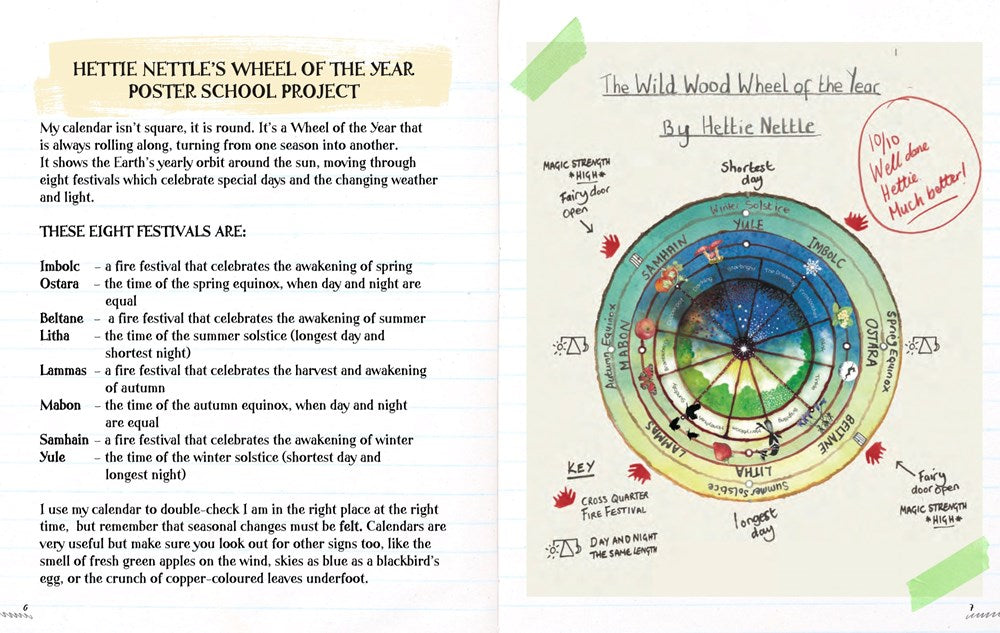 HETTIE NETTLE'S WHEEL OF THE YEAR
POSTER SCHOOL PROJECT
My calendar isn't square, it is round. It's a Wheel of the Year that
is always rolling along, turning from one season into another.
It shows the Earth's yearly orbit around the sun, moving through
eight festivals which celebrate special days and the changing weather
and light.
THESE EIGHT FESTIVALS ARE:
Imbolc – a fire festival that celebrates the awakening of spring
Ostara – the time of the spring equinox, when day and night are
equal
Beltane – a fire festival that celebrates the awakening of summer
Litha – the time of the summer solstice (longest day and
shortest night)
Lammas – a fire festival that celebrates the harvest and awakening
of autumn
Mabon – the time of the autumn equinox, when day and night
are equal
Samhain – a fire festival that celebrates the awakening of winter
Yule – the time of the winter solstice (shortest day and
longest night)
I use my calendar to double-check I am in the right place at the right
time, but remember that seasonal changes must be felt. Calendars are
very useful but make sure you look out for other signs too, like the
smell of fresh green apples on the wind, skies as blue as a blackbird's
egg, or the crunch of copper-coloured leaves underfoot.
6
The Wild Wood Wheel of the Year
By Hettie Nettle
10/10
Well done
Hettie
Much better!
MAGIC STRENGTH
*HIGH*
Fairy door
open
Shortest
day
Winter Solstice
YULE
IMBOLC
Spring Equinox
OSTARA
BELTANE
Summer Solstice
LITHA
LAMMAS
Autumn Equinox
MABON
SAMHAIN
longest
day
Fairy
door open
MAGIC STRENGTH
*HIGH*
KEY
CROSS QUARTER
FIRE FESTIVAL
DAY AND NIGHT
THE SAME LENGTH
7